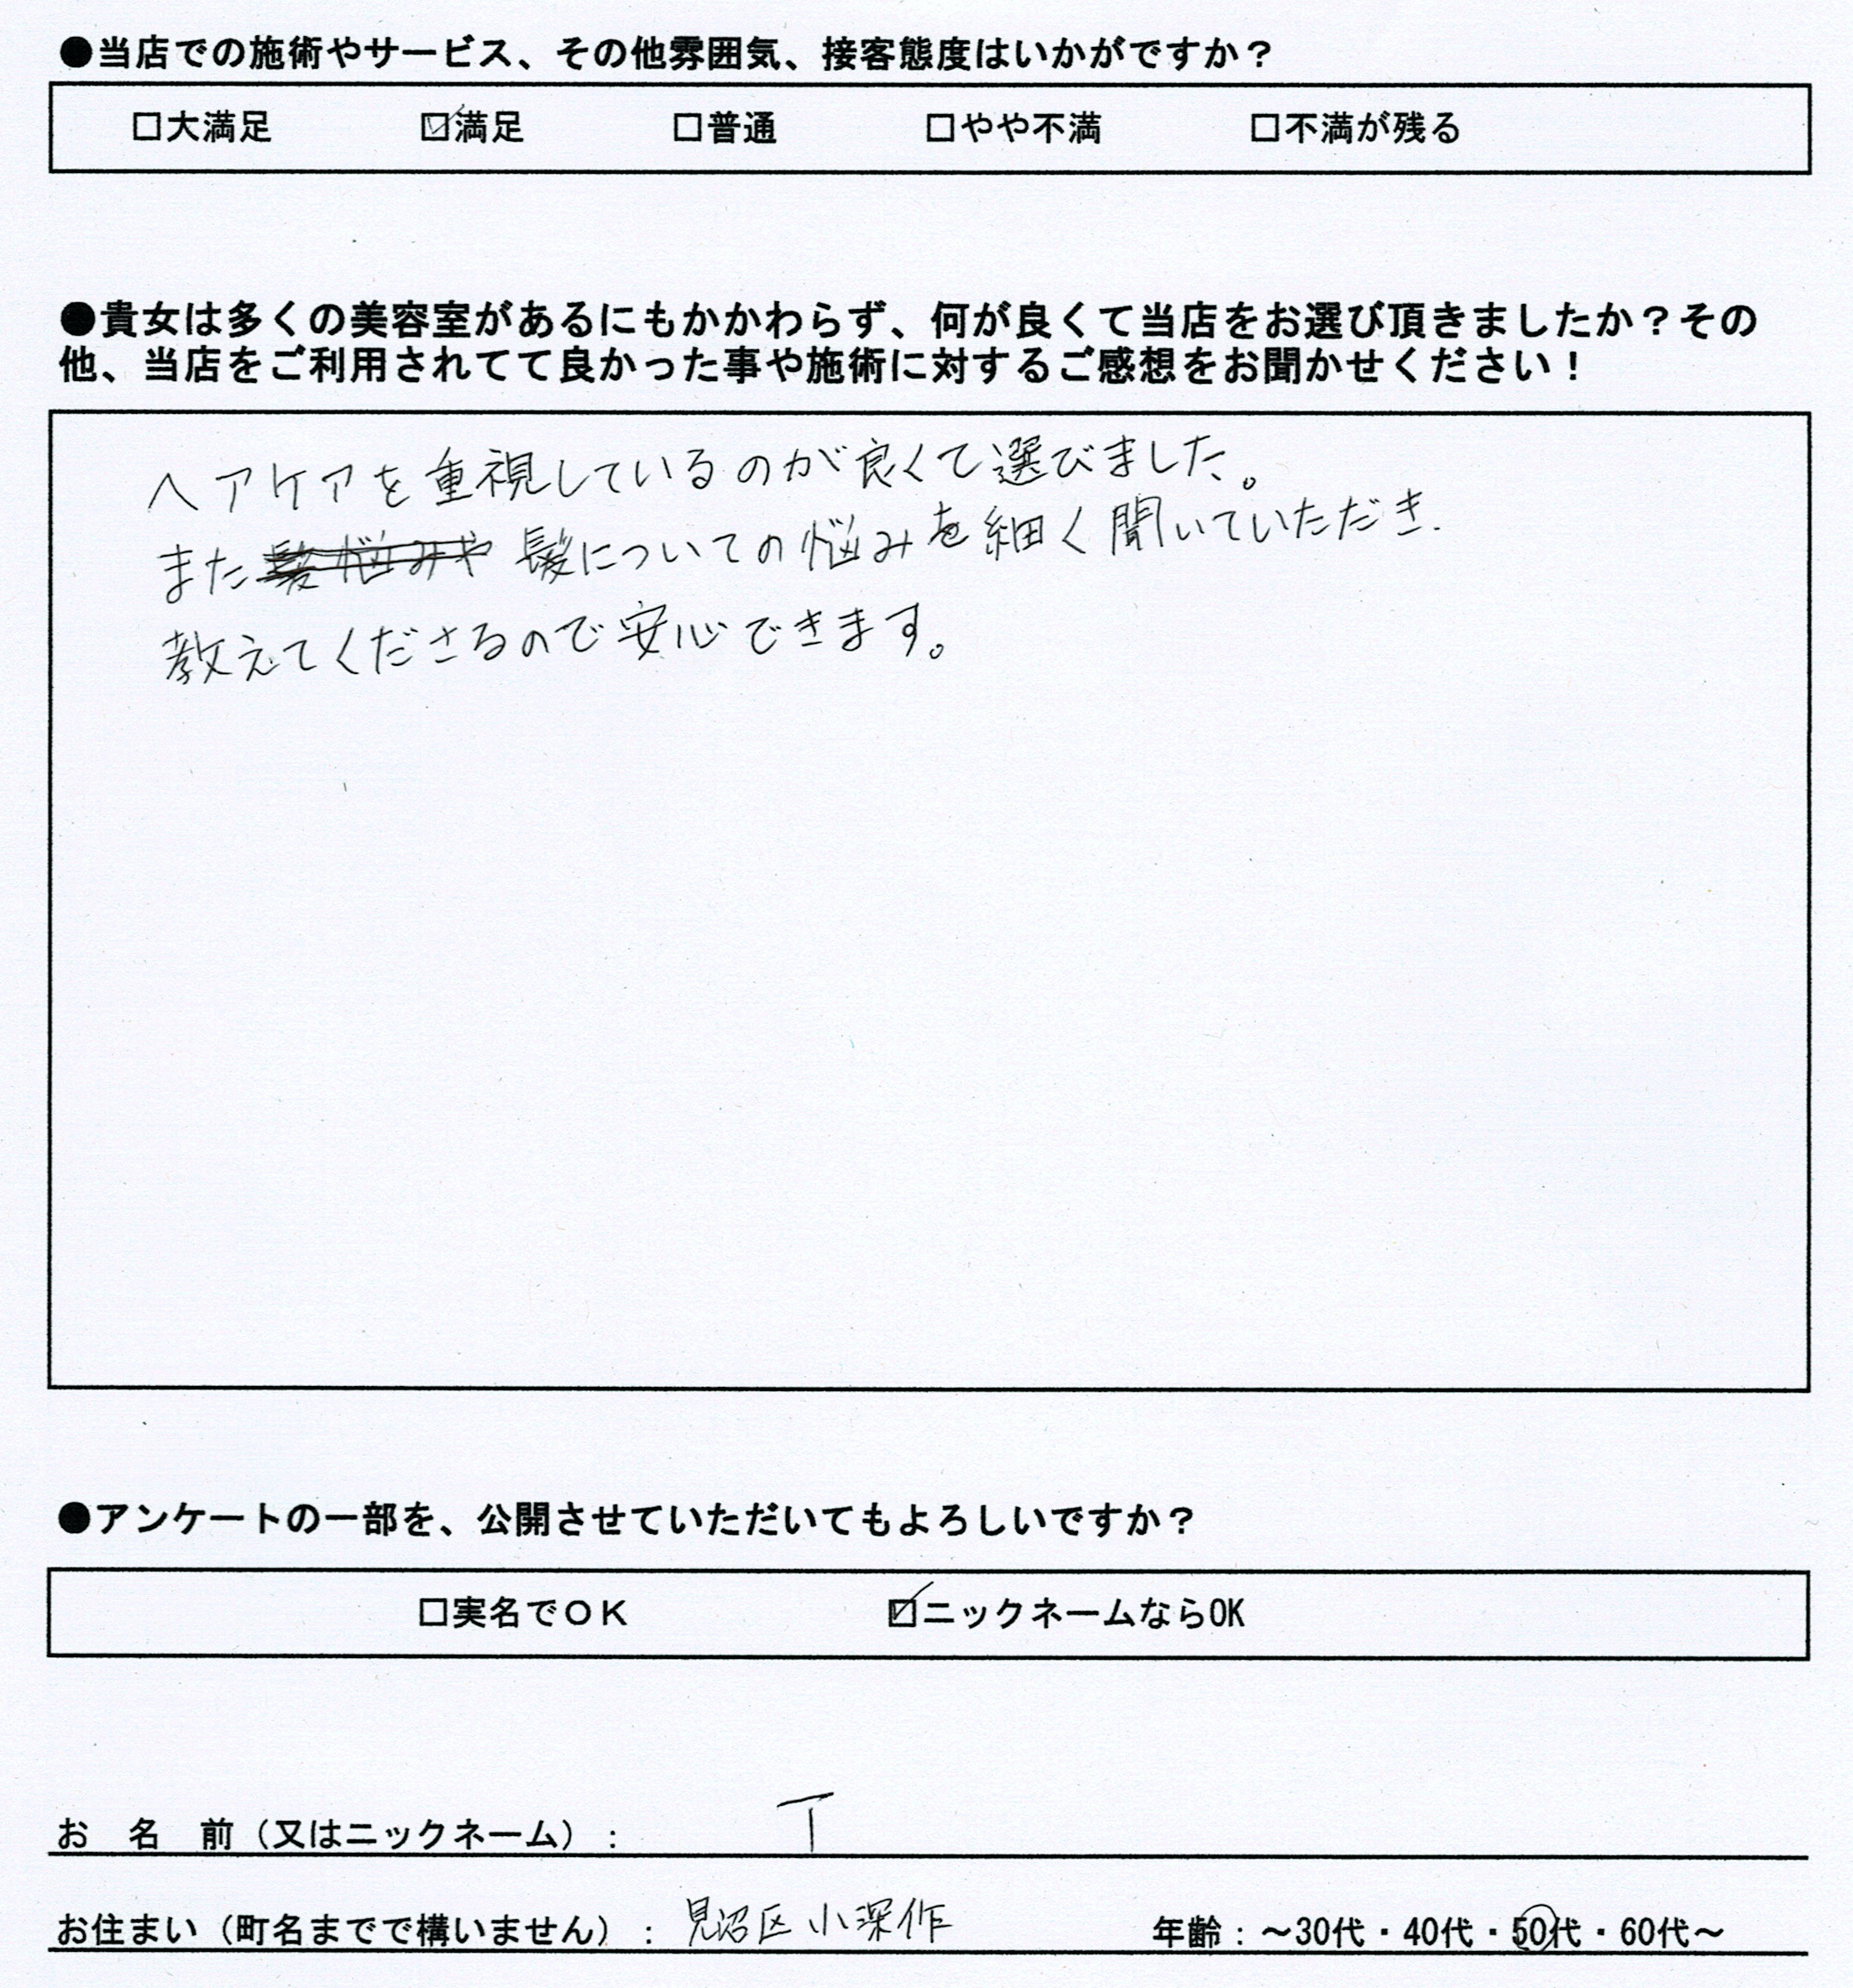 ●当店での施術やサービス、その他雰囲気、接客態度はいかがですか？
□大満足 ☑満足 □普通 □やや不満 □不満が残る
●貴女は多くの美容室があるにもかかわらず、何が良くて当店をお選び頂きましたか？その
他、当店をご利用されてて良かった事や施術に対するご感想をお聞かせください！
ヘアケアを重視しているのが良くて選びました。
また髪悩みや髪についての悩みを細く聞いていただき、
教えてくださるので安心できます。
●アンケートの一部を、公開させていただいてもよろしいですか？
□実名でＯＫ ☑ニックネームならOK
お　名　前（又はニックネーム）： T
お住まい（町名までで構いません）： 見沼区小深作 年齢：～30代・40代・50代・60代～